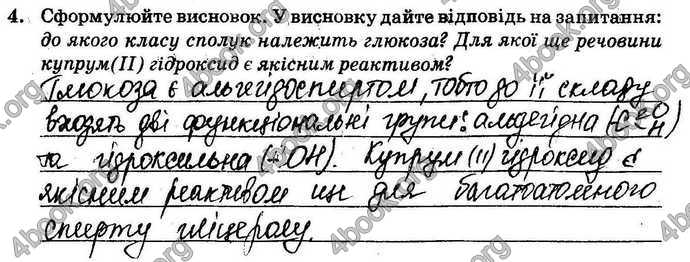 4. Сформулюйте висновок. У висновку дайте відповідь на запитання:
до якого класу сполук належить глюкоза? Для якої ще речовини
купрум(II) гідроксид є якісним реактивом?
Глюкоза є альгейдоспиртом, тобто до її складу
входять дві функціональні групи: альдегідна (-C=O H)
та гідроксильна (-OH). Купрум (II) гідроксид є
якісним реактивом ще для багатоатомного
спирту гліцеролу.
4book.org